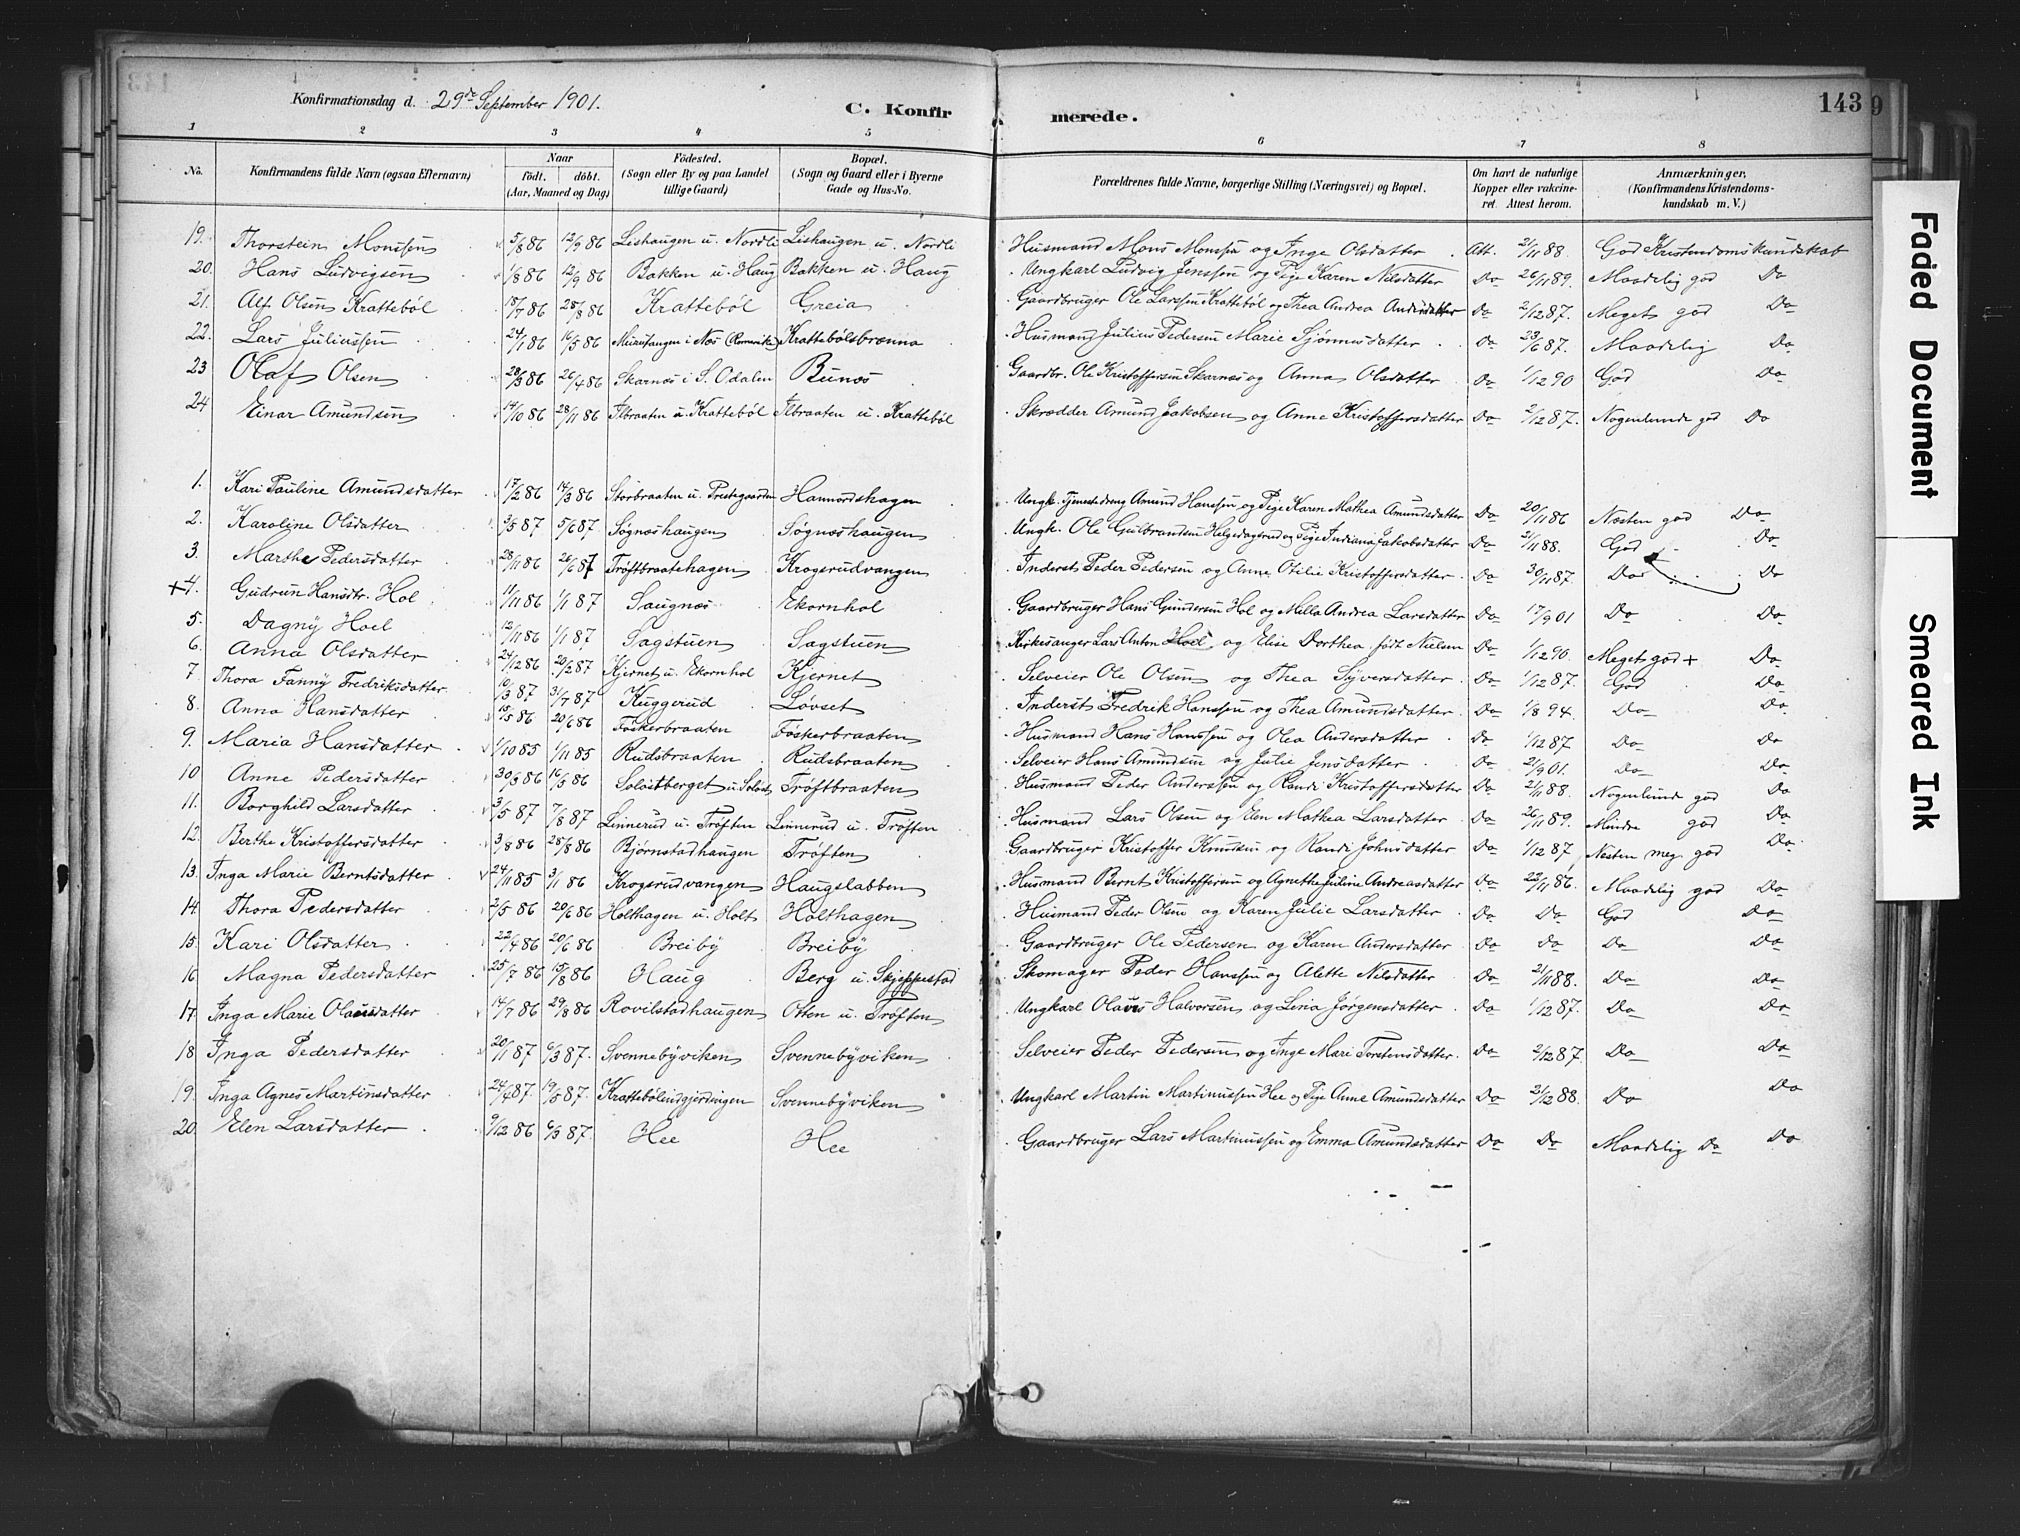 Konfirmationsdag d. 29de September 1901.
C. Konfirmerede.
143
9
1 2 3 4 5 6 7 8
No. Konfirmandens fulde Navn (ogsaa Efternavn) Naar födt. döbt. (Aar, Maaned og Dag) Födested. (Sogn eller By og paa Landet tillige Gaard) Bopæl. (Sogn og Gaard eller i Byerne Gade og Hus-No. Forældrenes fulde Navne, borgerlige Stilling (Næringsvei) og Bopæl. Om havt de naturlige Kopper eller vakcineret. Attest herom. Anmærkninger. (Konfirmandens Kristendomskundskab m. V.)
19. Thorstein Monssen 5/8 86 12/9 86 Lishaugen u. Nordli Lishaugen u. Nordli Husmand Mons Monssen og Inge Olsdatter Att. 2/11 88. God Kristendomskundskab
20. Hans Ludvigsen 1/8 86 12/9 86 Bakken u. Haug Bakken u. Haug Ungkarl Ludvig Jenssen og Pige Karen Nilsdatter Do 26/11 89. Maadelig god Do
21. Alf Olsen Kratteböl 18/7 86 28/8 86 Kratteböl Greia Gaardbruger Ole Larssen Kratteböl og Thea Andrea Andersdatter Do 2/12 87. Meget god Do
22. Lars Juliussen 24/1 86 16/5 86 i Næs Romerike Krattebölsbrænna Husmand Julius Pedersen Marie Sjönnesdatter Do 23/6 87. Maadelig Do
23 Olaf Olsen 28/3 86 26/4 86 Skarnes i S. Odalen Bunes Gaardbr. Ole Kristoffersen Skarnes og Anna Olsdatter Do 1/12 90 God Do
24 Einar Amundsen 14/10 86 28/11 86 Ilbraaten u. Kratteböl Ilbraaten u. Kratteböl Skrædder Amund Jakobsen og Anne Kristoffersdatter Do 2/12 87. Nogenlunde god Do
1. Kari Pauline Amundsdatter 17/2 86 14/3 86 Storbraaten u. Prestegaarden Hannordshagen Ungk. Tjenestedreng Amund Hanssen og Pige Karen Mathea Amundsdatter Do 20/11 86 Næsten god Do
2. Karoline Olsdatter 3/5 87 5/6 87 Sögneshaugen Sögneshaugen Ungk. Ole Gulbrandsen Helgedagsrud og Pige Indiana Jakobsdatter Do 2/11 88. God Do
3. Marthe Pedersdatter 28/11 86 26/6 87 Tröftbraatehagen Krogsrudvangen Inderst Peder Pedersen og Anne Otilie Kristoffersdatter Do 30/11 87. Do Do
+4. Gudrun Hansdtr. Hol 11/11 86 1/1 87 Saugnes Ekornhol Gaardbruger Hans Gundersen Hol og Milla Andrea Larsdatter Do 17/9 01 Do Do
5. Dagny Hoel 12/11 86 1/1 87 Sagstuen Sagstuen Kirkesanger Lars Anton Hoel og Elise Dorthea födt Nielsen Do 1/12 90. Meget god + Do
6. Anna Olsdatter 24/12 86 20/2 87 Kjernet u. Ekornhol Kjernet Selveier Ole Olsen og Thea Syversdatter Do 1/12 87. God Do
7. Thora Fanny Fredriksdatter 10/3 87 31/7 87 Kuggerud Lövset Inderst Fredrik Hanssen og Thea Amundsdatter Do 1/8 94. Do Do
8. Anna Hansdatter 15/5 86 20/6 86 Föskerbraaten Föskerbraaten Husmand Hans Hanssen og Olea Andersdatter Do 1/12 87 Do Do
9. Maria Hansdatter 1/10 85 1/11 85 Rudsbraaten Rudsbraaten Selveier Hans Amundsen og Julie Jensdatter Do 21/9 01. Do Do
10 Anne Pedersdatter 30/3 86 16/5 86 Soloistberget u. Tröftbraaten Husmand Peder Anderssen og Randi Kristoffersdatter Do 2/11 88. Nogenlunde god Do
11. Borghild Larsdatter 3/5 87 7/8 87 Linnerud u. Tröften Linnerud u. Tröften Husmand Lars Olsen og Elen Mathea Larsdatter Do 26/11 89. Mindre god Do
12. Berthe Kristoffersdatter 3/8 86 28/8 86 Björnstadhaugen Tröften Gaardbruger Kristoffer Knudsen og Randi Johnsdatter Do 1/12 87 Næsten meg god Do
13. Inga Marie Berntsdatter 24/11 85 3/1 86 Krogsrudvangen Haugslabben Husmand Bernt Kristoffersen og Agnethe Juline Andreasdatter Do 22/11 86. Maadelig god Do
14. Thora Pedersdatter 2/5 86 20/6 86 Holthagen u. Holt Holthagen Husmand Peder Olsen og Karen Julie Larsdatter Do Do God Do
15. Kari Olsdatter 22/4 86 20/6 86 Breiby Breiby Gaardbruger Ole Pedersen og Karen Andersdatter Do do Do Do
16 Magna Pedersdatter 25/7 86 15/8 86 Haug Berg u. Skjeppestad Skomager Peder Hanssen og Alette Nilsdatter Do 2/11 88. Do Do
17 Inga Marie Olausdatter 14/7 86 29/8 86 Rovilstadhaugen Otten u. Tröften Ungkarl Olaves Halvorsen og Lina Jörgensdatter Do 1/12 87. Do Do
18 Inga Pedersdatter 20/1 87 6/3 87. Svennebyviken Svennebyviken Selveier Peder Pedersen og Inge Mari Torstensdatter. Do 2/12 87. Do Do
19. Inga Agnes Martinsdatter 24/4 87. 19/5 87. Krattebölindgjerdingen Svennebyviken Ungkarl Martin Martinussen Hee og Pige Anne Amundsdatter Do 2/12 88. Do Do
20 Elen Larsdatter 9/12 86 6/3 87. Hee Hee Gaardbruger Lars Martinussen og Emma Amundsdatter Do Do Maadelig Do Do
Faded Document
Smeared Ink